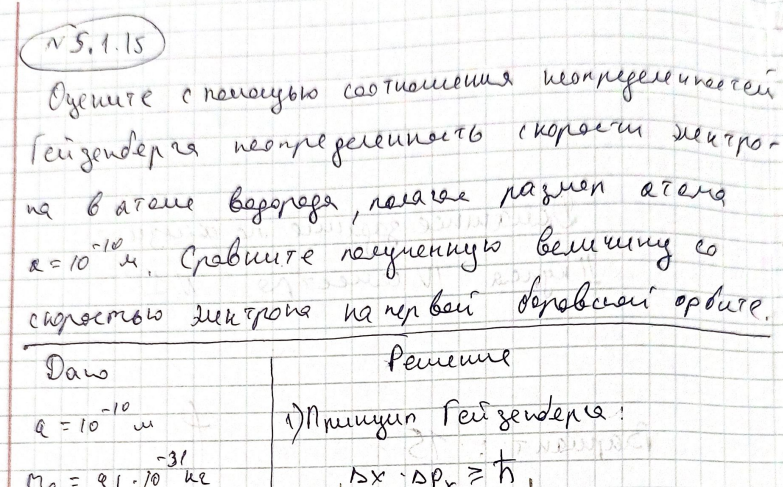 №5.1.15
Оцените с помощью соотношения неопределенностей
Гейзенберга неопределенность скорости электро-
на в атоме водорода, полагая размер атома
a = 10⁻¹⁰ м. Сравните полученную величину со
скоростью электрона на первой боровской орбите.
Дано
Решение
a = 10⁻¹⁰ м
1) Принцип Гейзенберга:
mₑ = 9,1·10⁻³¹ кг
Δx · Δpₓ ≥ ħ,